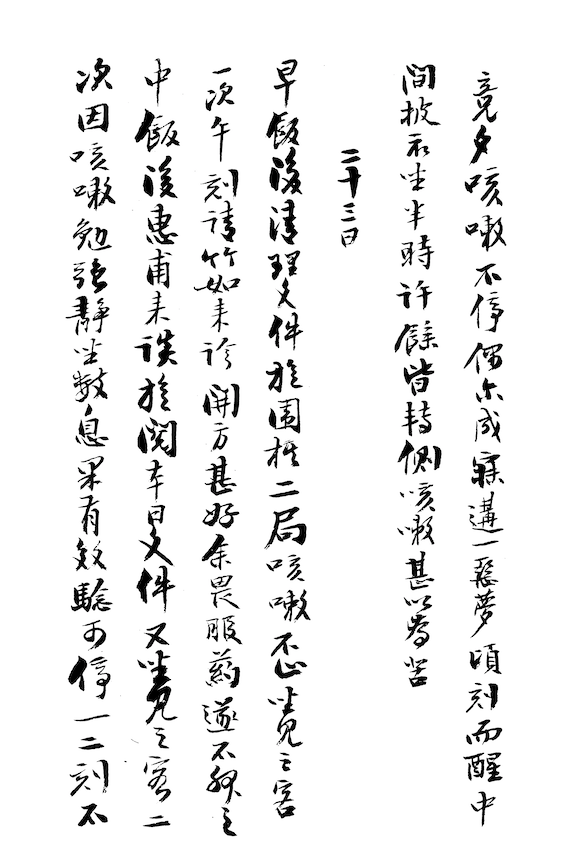 竟夕咳嗽不停偶尔成寐遘一惡夢頃刻而醒中
間披衣坐半時許餘皆轉側咳嗽甚以為苦
二十三日
早飯後清理文件旋圍棋二局咳嗽不止坐見之客
一次午刻請竹如來診開方甚好余畏服藥遂不服之
中飯後惠甫來談旋閱本日文件又坐見之客二
次因咳嗽勉強靜坐數息果有效驗可停一二刻不